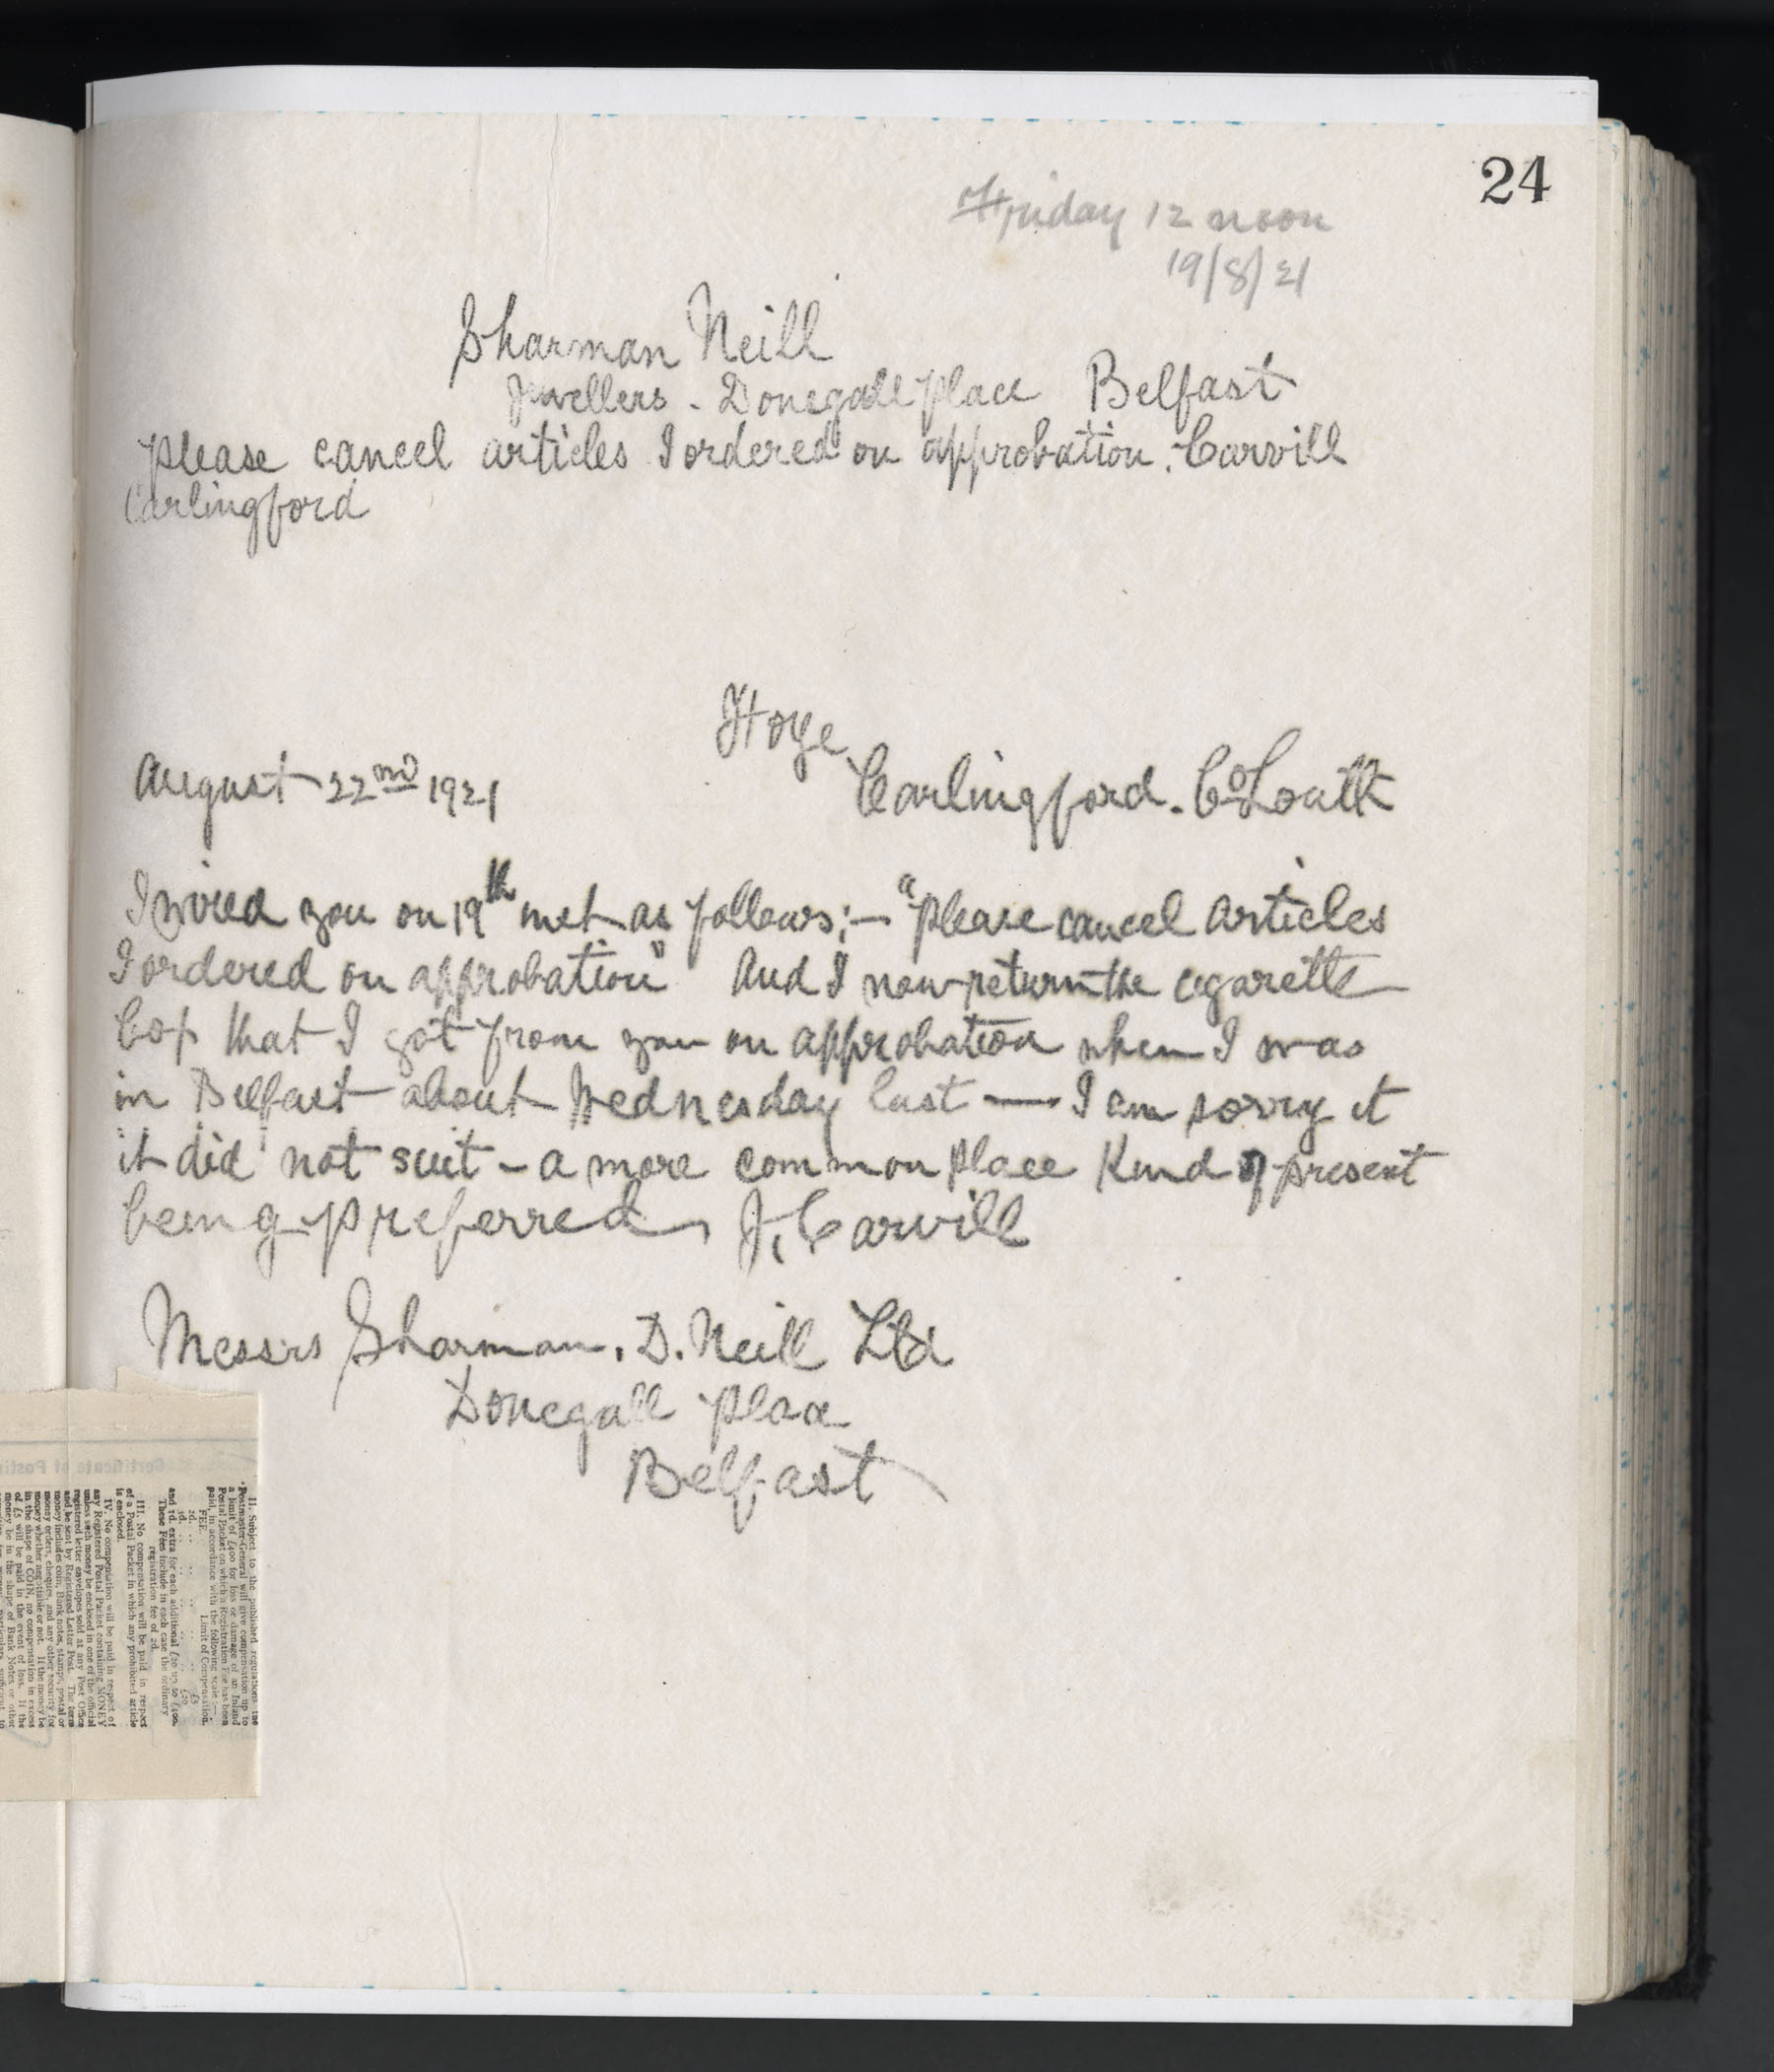 24
Friday 12 noon
19/8/21
Sharman Neill
Jewellers - Donegall place Belfast
please cancel articles I ordered on approbation. Carvill
Carlingford
Hoye
August 22nd 1921
Carlingford. Co Louth
I wired you on 19th inst as follows:— "please cancel articles
I ordered on approbation" And I now return the cigarette
that I got from you on approbation when I was
in Belfast about Wednesday last — I am sorry it
it did not suit – a more common place kind of present
being preferred, J. Carvill
Messrs Sharman. D. Neill Ltd
Donegall place
Belfast
Certificate of Posting
II. Subject to the published regulations the
Postmaster-General will give compensation up to
a limit of £400 for loss or damage of an Inland
Postal Packet on which a Registration Fee has been
paid, in accordance with the following scale:—
FEE. Limit of Compensation.
2d. .. .. .. £5
3d. .. .. .. £20
and 1d. extra for each additional £20 up to £400.
These Fees include in each case the ordinary
registration fee of 2d.
III. No compensation will be paid in respect
of a Postal Packet in which any prohibited article
is enclosed.
IV. No compensation will be paid in respect of
any Registered Postal Packet containing MONEY
unless such money be enclosed in one of the official
registered letter envelopes sold at any Post Office
and be sent by Registered Letter Post. The term
money includes coin, Bank notes, stamps, postal or
money orders, cheques, and any other security for
money whether negotiable or not. If the money be
in the shape of COIN, no compensation in excess
of £5 will be paid in the event of loss. If the
money be in the shape of Bank Notes or other